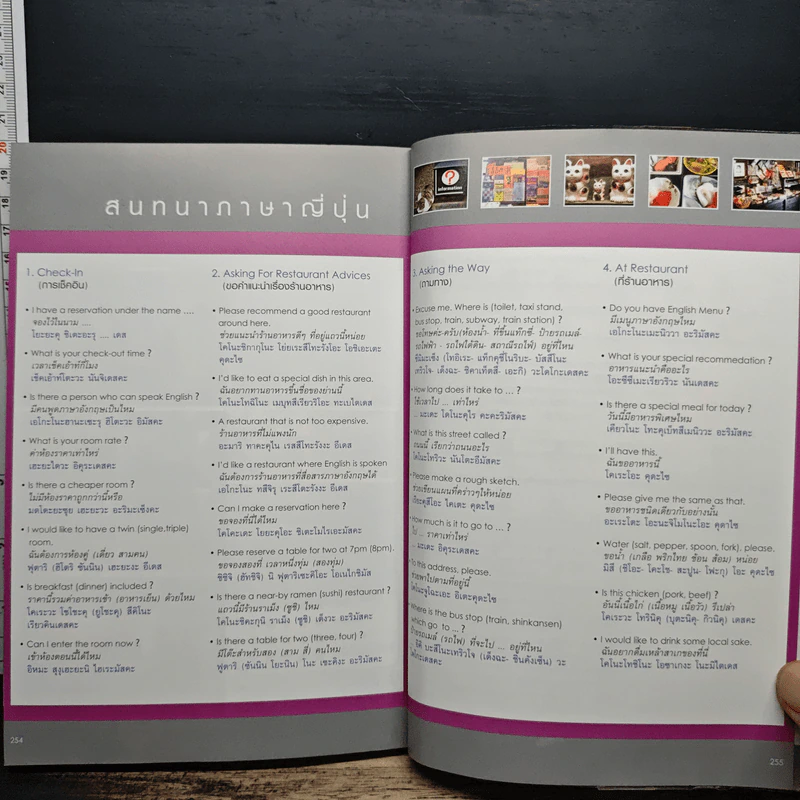 สนทนาภาษาญี่ปุ่น
1. Check-In
(การเช็คอิน)
• I have a reservation under the name ....
จองไว้ในนาม ....
โยะยะคุ ชิเตะอะรุ .... เดส
• What is your check-out time ?
เวลาเช็คเอ้าท์กี่โมง
เช็คเอ้าท์โตะวะ นันจิเดสคะ
• Is there a person who can speak English ?
มีคนพูดภาษาอังกฤษเป็นไหม
เอโกะโนะฮานะเซะรุ ฮิโตะวะ อิมัสคะ
• What is your room rate ?
ค่าห้องราคาเท่าไหร่
เฮะยะไดวะ อิคุระเดสคะ
• Is there a cheaper room ?
ไม่มีห้องราคาถูกกว่านี้หรือ
มตโตะยะซุย เฮะยะวะ อะริมะเซ็งคะ
• I would like to have a twin (single,triple)
room.
ฉันต้องการห้องคู่ (เดี่ยว สามคน)
ฟุตาริ (ฮิโตริ ซันนิน) เฮยะงะ อีเดส
• Is breakfast (dinner) included ?
ราคานี้รวมค่าอาหารเช้า (อาหารเย็น) ด้วยไหม
โคเระวะ โชโชะคุ (ยูโชะคุ) สึคิโนะ
เรียวคินเดสคะ
• Can I enter the room now ?
เข้าห้องตอนนี้ได้ไหม
อิหมะ สุงุเฮะยะนิ ไฮเระมัสคะ
2. Asking For Restaurant Advices
(ขอคำแนะนำเรื่องร้านอาหาร)
• Please recommend a good restaurant
around here.
ช่วยแนะนำร้านอาหารดีๆ ที่อยู่แถวนี้หน่อย
โคโนะชิกากุโนะ โย่ยเรสึโทะรังโอะ โอชิเอะเตะ
คุดะไซ
• I'd like to eat a special dish in this area.
ฉันอยากทานอาหารขึ้นชื่อของย่านนี้
โคโนะโทฉิโนะ เมบุทสึเรียวริโอะ ทะเบไตเดส
• A restaurant that is not too expensive.
ร้านอาหารที่ไม่แพงนัก
อะมาริ ทาคะคุไน เรสสึโทะรังงะ อีเดส
• I'd like a restaurant where English is spoken
ฉันต้องการร้านอาหารที่สื่อสารภาษาอังกฤษได้
เอโกะโนะ ทสึจิรุ เระสึโตะรังงะ อีเดส
• Can I make a reservation here ?
ขอจองที่นี่ได้ไหม
โคโคะเดะ โยยะคุโอะ ชิเตะโมไรเอะมัสคะ
• Please reserve a table for two at 7pm (8pm).
ขอจองสองที่ เวลาหนึ่งทุ่ม (สองทุ่ม)
ชิชิจิ (ฮัทชิจิ) นิ ฟุตาริเซะคิโอะ โอเนไกชิมัส
• Is there a near-by ramen (sushi) restaurant ?
แถวนี้มีร้านราเม็ง (ซูชิ) ไหม
โคโนะชิคะกุนิ ราเม็ง (ซูชิ) เต็งวะ อะริมัสคะ
• Is there a table for two (three, four) ?
มีโต๊ะสำหรับสอง (สาม สี่) คนไหม
ฟูตาริ (ซันนิน โยะนิน) โนะ เซะคิงะ อะริมัสคะ
254
information
3. Asking the Way
(ถามทาง)
Excuse me. Where is (toilet, taxi stand,
bus stop, train, subway, train station) ?
ขอโทษค่ะ-ครับ(ห้องน้ำ- ที่ขึ้นแท็กซี่- ป้ายรถเมล์-
รถไฟฟ้า - รถไฟใต้ดิน- สถานีรถไฟ) อยู่ที่ไหน
How long does it take to ... ?
ใช้เวลาไป ... เท่าไหร่
... มะเดะ โดโนะคุไร คะคะริมัสคะ
What is this street called ?
ถนนนี้ เรียกว่าถนนอะไร
โคโนะโทริวะ นันโตะอีมัสคะ
Please make a rough sketch.
ช่วยเขียนแผนที่คร่าวๆให้หน่อย
How much is it to go to ... ?
ไป ... ราคาเท่าไหร่
... มะเดะ อิคุระเดสคะ
To this address, please.
ช่วยพาไปตามที่อยู่นี้
Where is the bus stop (train, shinkansen)
which go to ... ?
ป้ายรถเมล์ (รถไฟ) ที่จะไป ... อยู่ที่ไหน
4. At Restaurant
(ที่ร้านอาหาร)
• Do you have English Menu ?
มีเมนูภาษาอังกฤษไหม
เอโกะโนะเมะนิววา อะริมัสคะ
• What is your special recommedation ?
อาหารแนะนำคืออะไร
โอะซึซึเมะเรียวริวะ นันเดสคะ
• Is there a special meal for today ?
วันนี้มีอาหารพิเศษไหม
เคียวโนะ โทะคุเบ็ทสึเมนิววะ อะริมัสคะ
• I'll have this.
ฉันขออาหารนี้
โคเระโอะ คุดะไซ
• Please give me the same as that.
ขออาหารชนิดเดียวกับอย่างนั้น
อะเระโตะ โอะนะจิโมโนะโอะ คุดาไซ
• Water (salt, pepper, spoon, fork), please.
ขอน้ำ (เกลือ พริกไทย ช้อน ส้อม) หน่อย
มิสึ (ชิโอะ- โคะโช- สะปูน- โฟะกุ) โอะ คุดะไซ
• Is this chicken (pork, beef) ?
อันนี้เนื้อไก่ (เนื้อหมู เนื้อวัว) รึเปล่า
โคเระวะ โทรินิคุ (บุตะนิคุ- กิวนิคุ) เดสคะ
• I would like to drink some local sake.
ฉันอยากดื่มเหล้าสาเกของที่นี่
โคโนะโทชิโนะ โอซาเกงะ โนะมิไตเดส
255